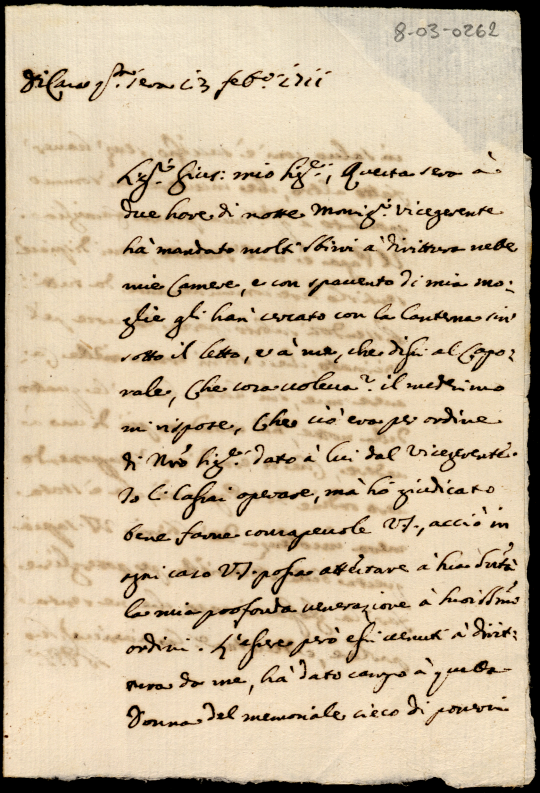 8-03-0262
Di Casa q.ta sera 13 feb.o 1711
Ill.mo Sig.r mio Sig.re, Questa sera à
due hore di notte Monsig.r Vicegerente
hà mandato molti sbirri à dirittura nelle
mie Camere, e con spavento di mia mo-
glie gli han' cercato con la lanterna sin'
sotto il letto, e à me, che dissi al Capo-
rale, Che cosa voleva? il medesimo
mi rispose, Che ciò era per ordine
di N'ro Sig.re dato à lui dal Vicegerente.
Io li lasciai operare, mà hò giudicato
bene farne consapevole VS., acciò in
ogni caso VS. possa attestare à Sua Santità
la mia profonda venerazione à suoi SS.mi
ordini. L'essere però essi venuti à dirit-
tura da me, hà dato campo à quella
Donna del memoriale cieco di potersi